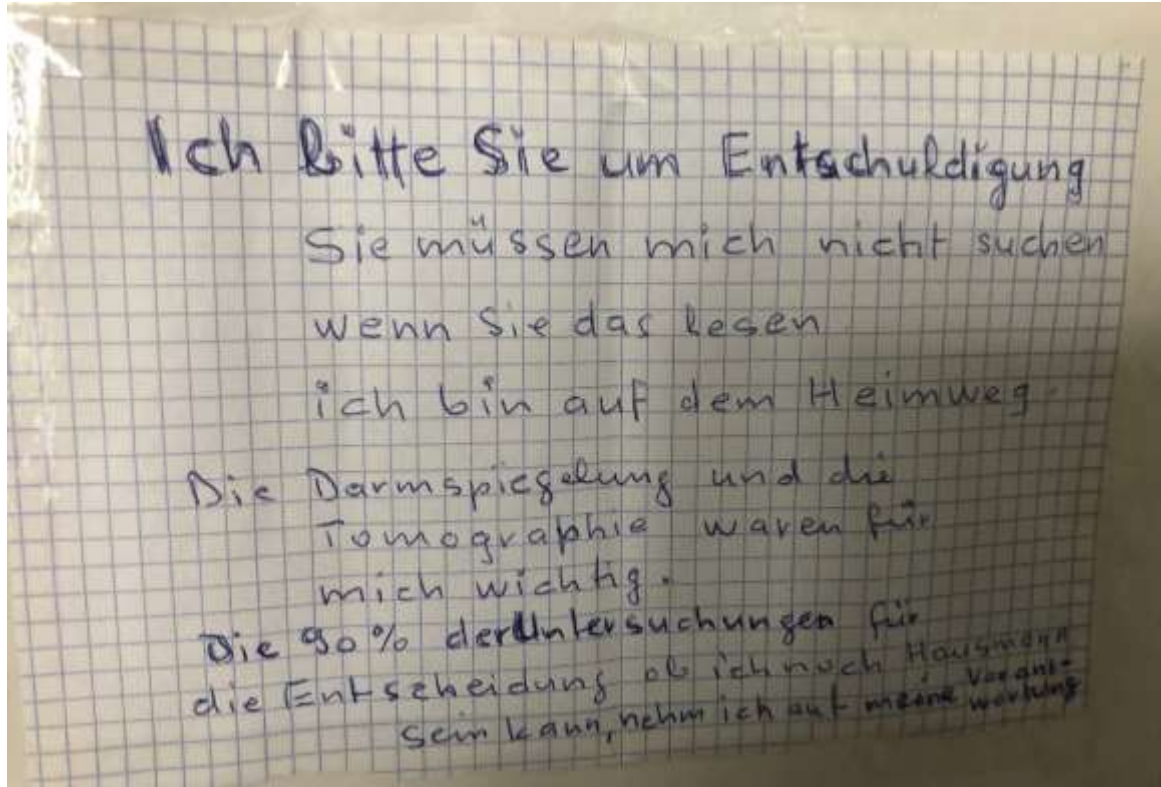 Ich Bitte Sie um Entschuldigung
Sie müssen mich nicht suchen
wenn Sie das lesen
ich bin auf dem Heimweg.
Die Darmspiegelung und die
Tomographie waren für
mich wichtig.
Die 90% der Untersuchungen für
die Entscheidung ob ich noch Hausmann
sein kann, nehm ich auf meine Verant-
wortung